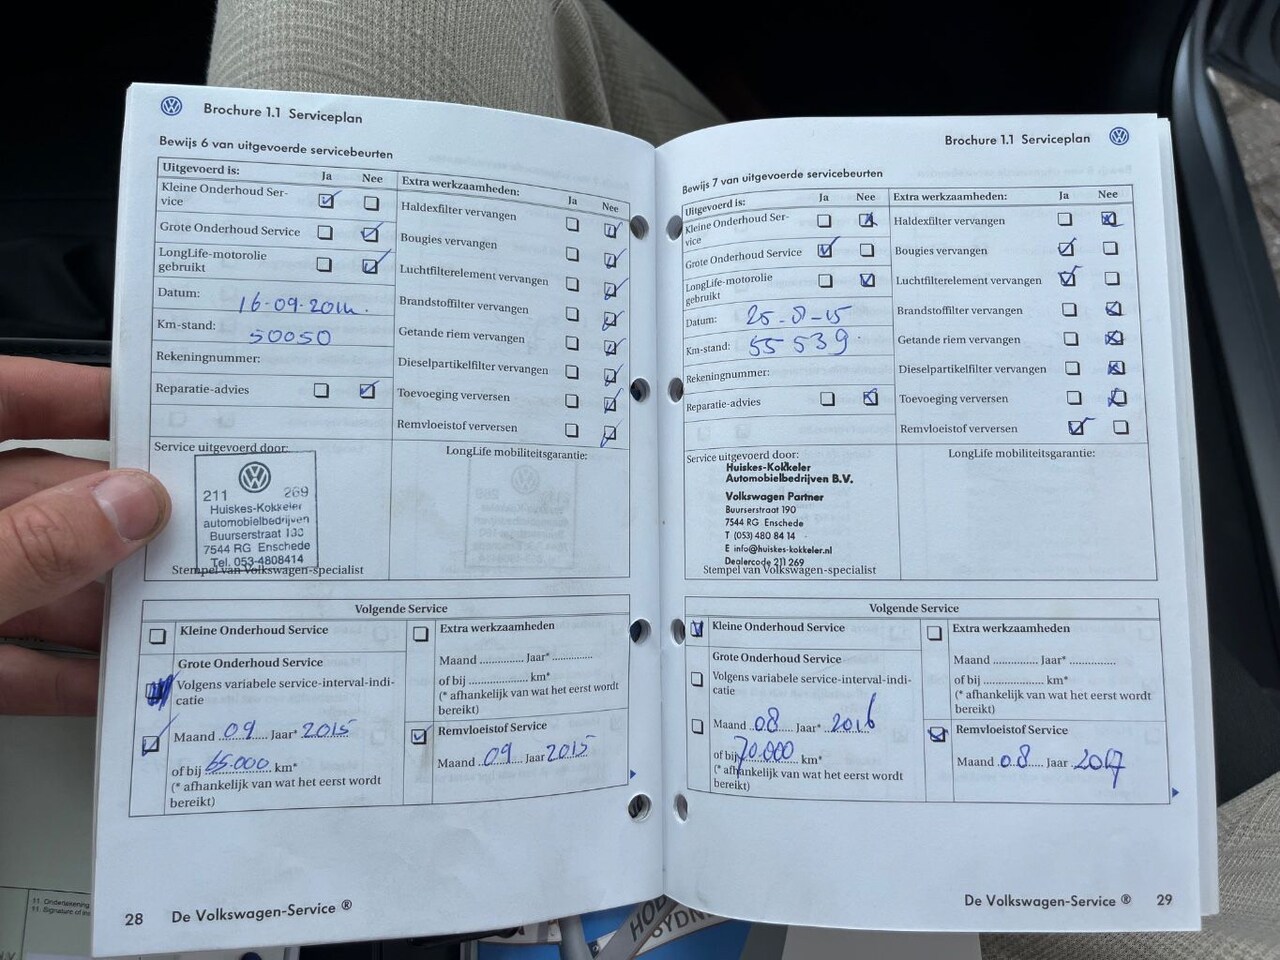 Brochure 1.1 Serviceplan
Bewijs 6 van uitgevoerde servicebeurten
Uitgevoerd is:
Ja
Nee
Kleine Onderhoud Ser-
vice
Grote Onderhoud Service
LongLife-motorolie
gebruikt
Datum: 16-09-2014.
Km-stand: 50050
Rekeningnummer:
Reparatie-advies
Extra werkzaamheden:
Ja
Nee
Haldexfilter vervangen
Bougies vervangen
Luchtfilterelement vervangen
Brandstoffilter vervangen
Getande riem vervangen
Dieselpartikelfilter vervangen
Toevoeging verversen
Remvloeistof verversen
Service uitgevoerd door:
211 269
Huiskes-Kokkeler
automobielbedrijven
Buurserstraat
7544 RG Enschede
Tel. 053-4808414
Stempel van Volkswagen-specialist
LongLife mobiliteitsgarantie:
Volgende Service
Kleine Onderhoud Service
Grote Onderhoud Service
Volgens variabele service-interval-indi-
catie
Maand 09 Jaar* 2015
of bij 65.000 km*
(* afhankelijk van wat het eerst wordt
bereikt)
Extra werkzaamheden
Maand ............... Jaar* ..............
of bij ..................... km*
(* afhankelijk van wat het eerst wordt
bereikt)
Remvloeistof Service
Maand 09 Jaar 2015
28
De Volkswagen-Service ®
Brochure 1.1 Serviceplan
Bewijs 7 van uitgevoerde servicebeurten
Uitgevoerd is:
Ja
Nee
Kleine Onderhoud Ser-
vice
Grote Onderhoud Service
LongLife-motorolie
gebruikt
Datum: 25-8-15
Km-stand: 55 539
Rekeningnummer:
Reparatie-advies
Extra werkzaamheden:
Ja
Nee
Haldexfilter vervangen
Bougies vervangen
Luchtfilterelement vervangen
Brandstoffilter vervangen
Getande riem vervangen
Dieselpartikelfilter vervangen
Toevoeging verversen
Remvloeistof verversen
Service uitgevoerd door:
Huiskes-Kokkeler
Automobielbedrijven B.V.
Volkswagen Partner
Buurserstraat 190
7544 RG Enschede
T (053) 480 84 14
E info@huiskes-kokkeler.nl
Dealercode 211 269
Stempel van Volkswagen-specialist
LongLife mobiliteitsgarantie:
Volgende Service
Kleine Onderhoud Service
Grote Onderhoud Service
Volgens variabele service-interval-indi-
catie
Maand 08 Jaar* 2016
of bij 70.000 km*
(* afhankelijk van wat het eerst wordt
bereikt)
Extra werkzaamheden
Maand ............... Jaar* ..............
of bij ..................... km*
(* afhankelijk van wat het eerst wordt
bereikt)
Remvloeistof Service
Maand 08 Jaar 2017
De Volkswagen-Service ®
29